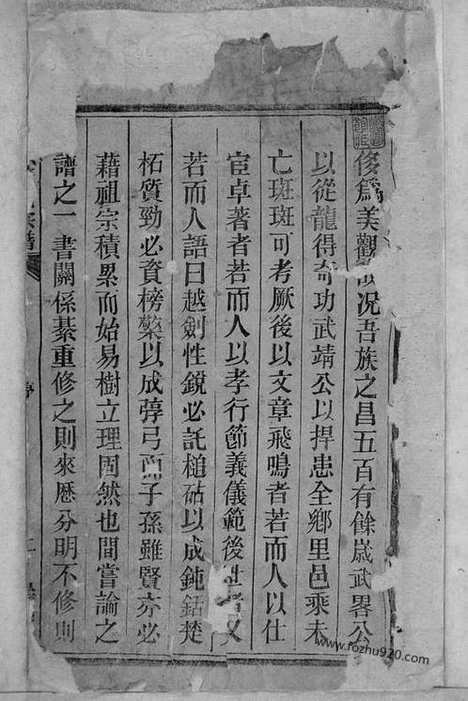 侈為美觀況吾族之昌五百有餘嵗武畧公
以從龍得奇功武靖公以捍患全鄉里邑乘未
亡斑斑可考厥後以文章飛鳴者若而人以仕
宦卓著者若而人以孝行節義儀範後世者又
若而人語曰越劍性銳必託槌砧以成鈍楚
柘質勁必資榜檠以成弴弓而子孫雖賢亦必
藉祖宗積累而始易樹立理固然也間嘗論之
譜之一書關係綦重修之則來歷分明不修則
www.fozhu920.com